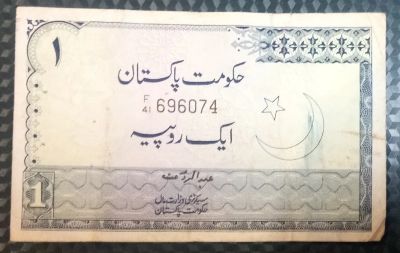 ۱
حکومت پاکستان
F/41 696074
ایک روپیہ
سیکرٹری وزارت مال
حکومت پاکستان
1